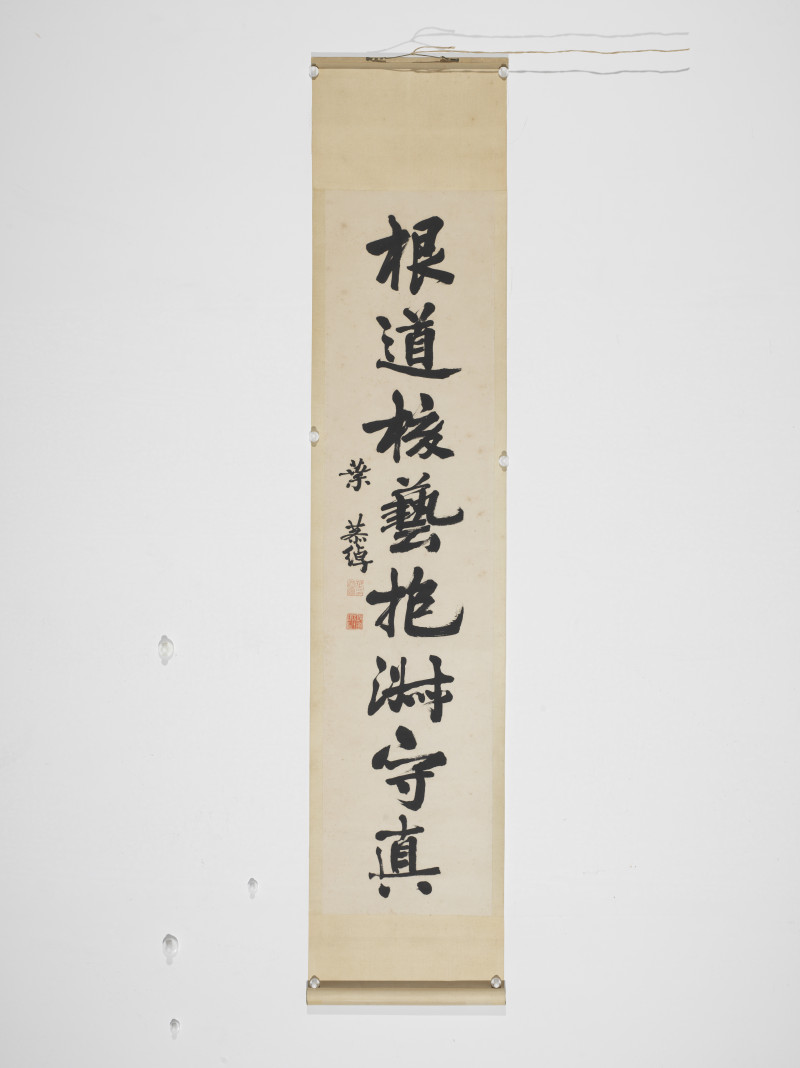 根道核藝抱淑守真
葉恭綽